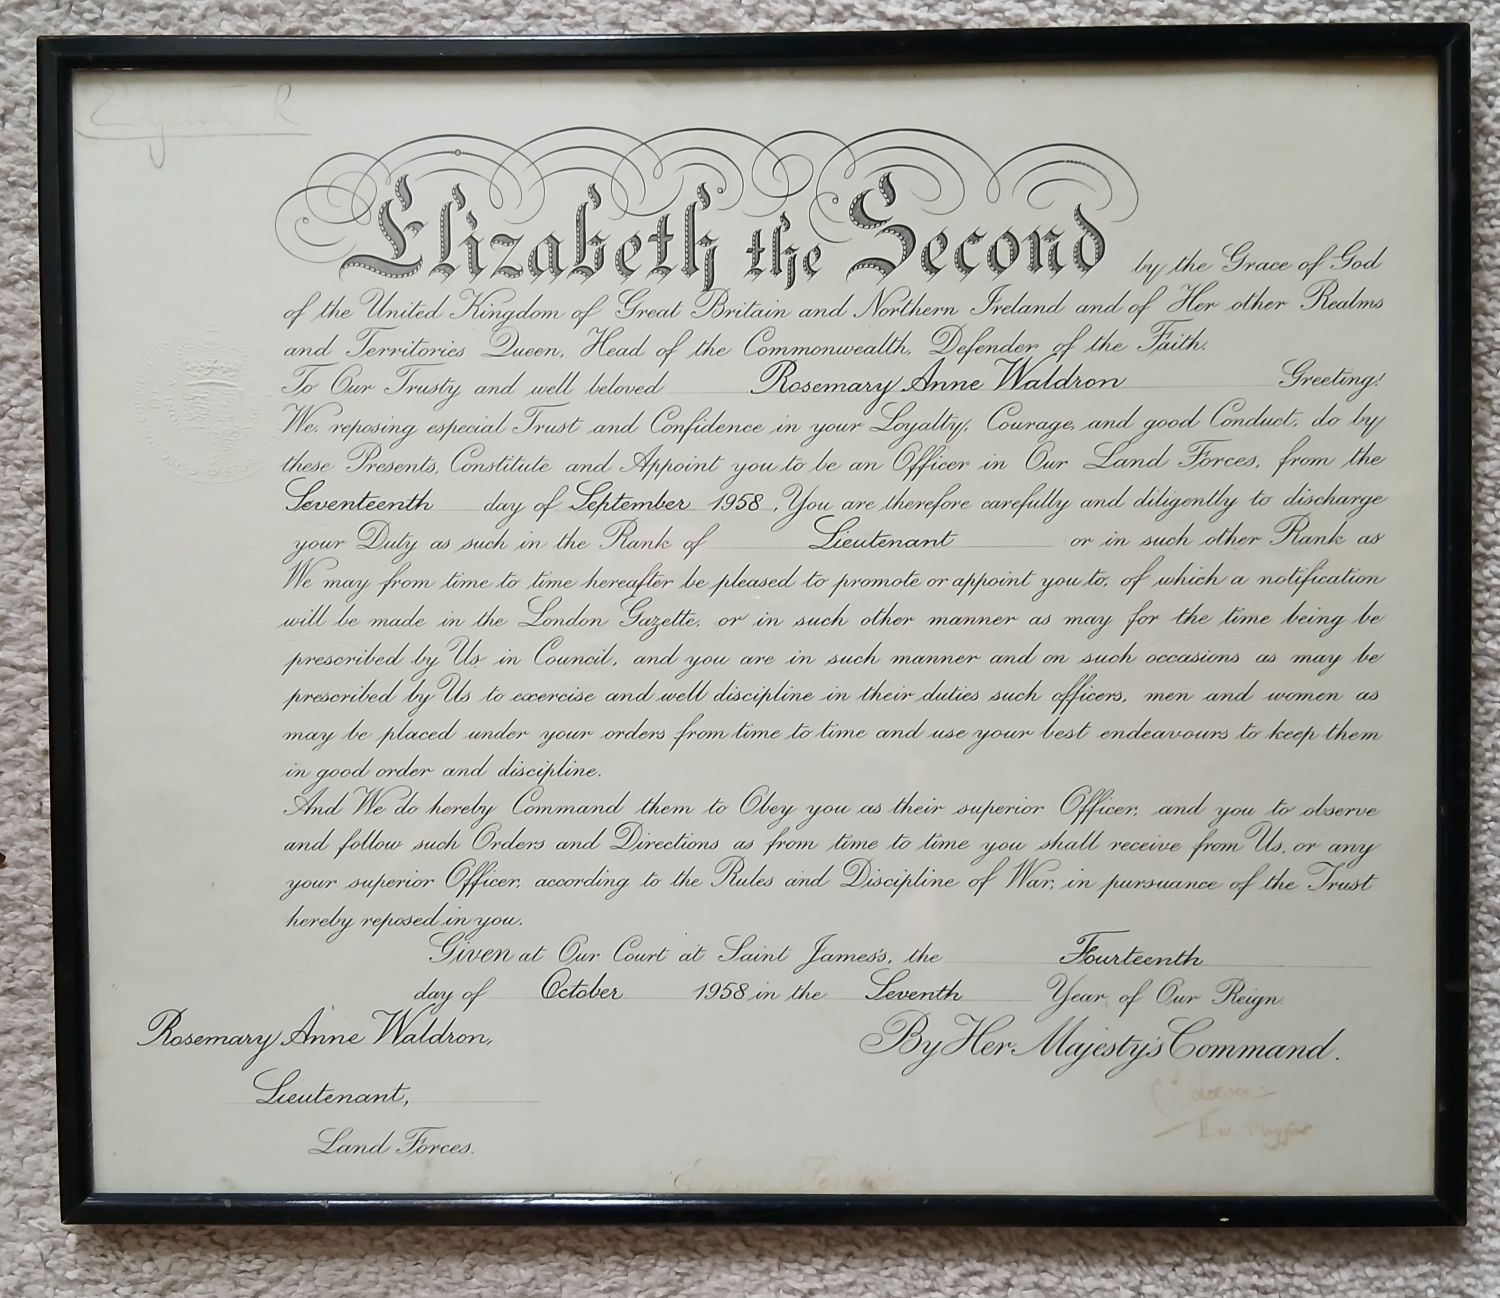 Elizabeth R
Elizabeth the Second by the Grace of God
of the United Kingdom of Great Britain and Northern Ireland and of Her other Realms
and Territories Queen, Head of the Commonwealth, Defender of the Faith.
To Our Trusty and well beloved Rosemary Anne Waldron Greeting!
We, reposing especial Trust and Confidence in your Loyalty, Courage, and good Conduct, do by
these Presents, Constitute and Appoint you to be an Officer in Our Land Forces, from the
Seventeenth day of September 1958. You are therefore carefully and diligently to discharge
your Duty as such in the Rank of Lieutenant or in such other Rank as
We may from time to time hereafter be pleased to promote or appoint you to, of which a notification
will be made in the London Gazette, or in such other manner as may for the time being be
prescribed by Us in Council, and you are in such manner and on such occasions as may be
prescribed by Us to exercise and well discipline in their duties such officers, men and women as
may be placed under your orders from time to time and use your best endeavours to keep them
in good order and discipline.
And We do hereby Command them to Obey you as their superior Officer, and you to observe
and follow such Orders and Directions as from time to time you shall receive from Us, or any
your superior Officer, according to the Rules and Discipline of War, in pursuance of the Trust
hereby reposed in you.
Given at Our Court at Saint James's, the Fourteenth
day of October 1958 in the Seventh Year of Our Reign
Rosemary Anne Waldron,
By Her Majesty's Command.
Lieutenant,
E. W. Playfair
Land Forces.